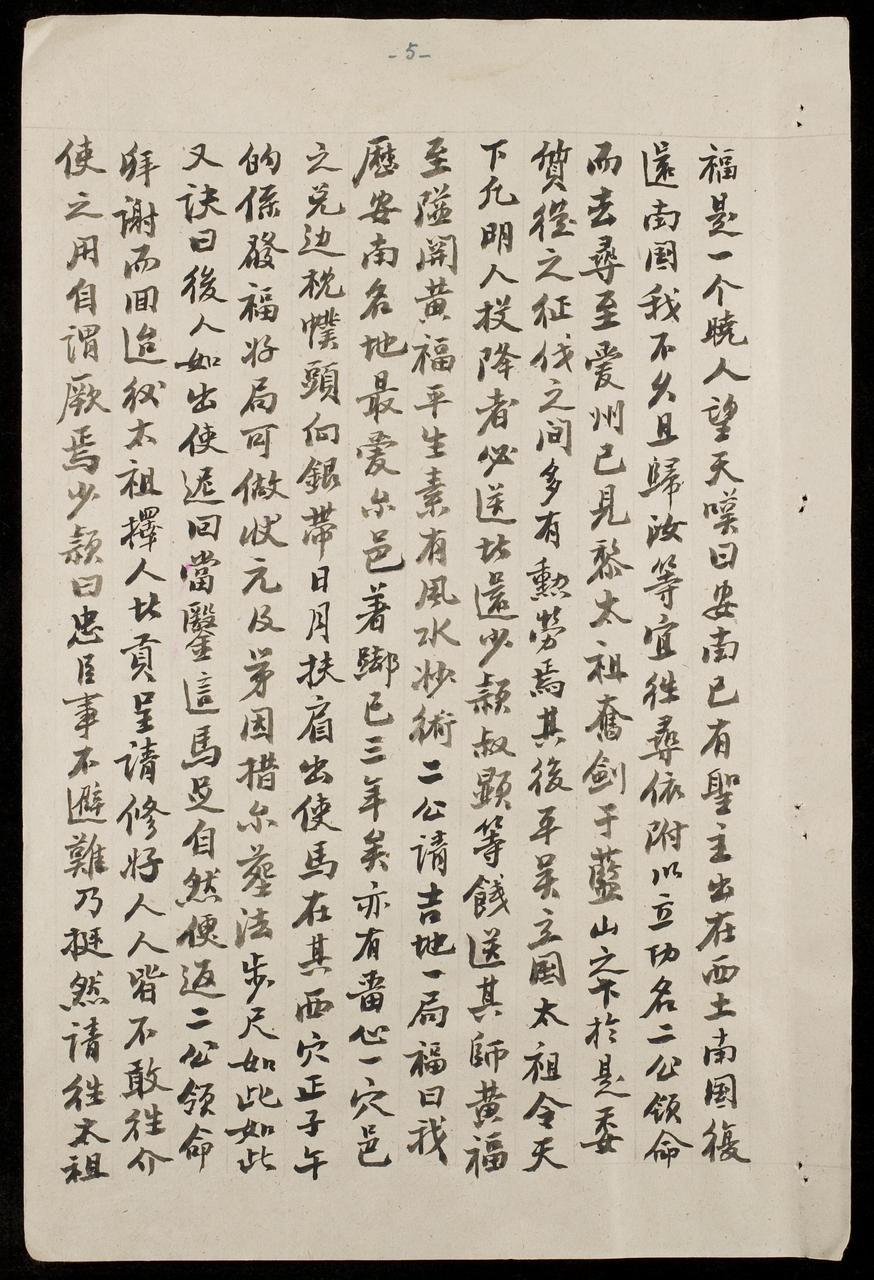 -5-
福是一个曉人望天嘆曰安南已有聖主出在西土南國復
還南國我不久且歸汝等宜往尋依附以立功名二公領命
而去尋至愛州已見黎太祖奮劍于藍山之下於是委
質從之征伐之间多有勲勞焉其後平吳立國太祖令天
下凢明人投降者必送北還少穎叔顕等餞送其師黄福
至隘開黄福平生素有風水妙術二公請吉地一局福曰我
歷安南名地最爱尔邑著脚已三年矣亦有畱心一穴邑
之兌边枕幞頭向銀帶日月扶肩出使馬在其西穴正子午
的係發福好局可做狀元及第因措尔塟法步尺如此如此
又訣曰後人如出使遅回當鑿這馬足自然便返二公領命
拜謝而回迨後太祖擇人北貢呈請修好人人皆不敢往介
使之用自謂厥焉少穎曰忠臣事不避難乃挺然請往太祖